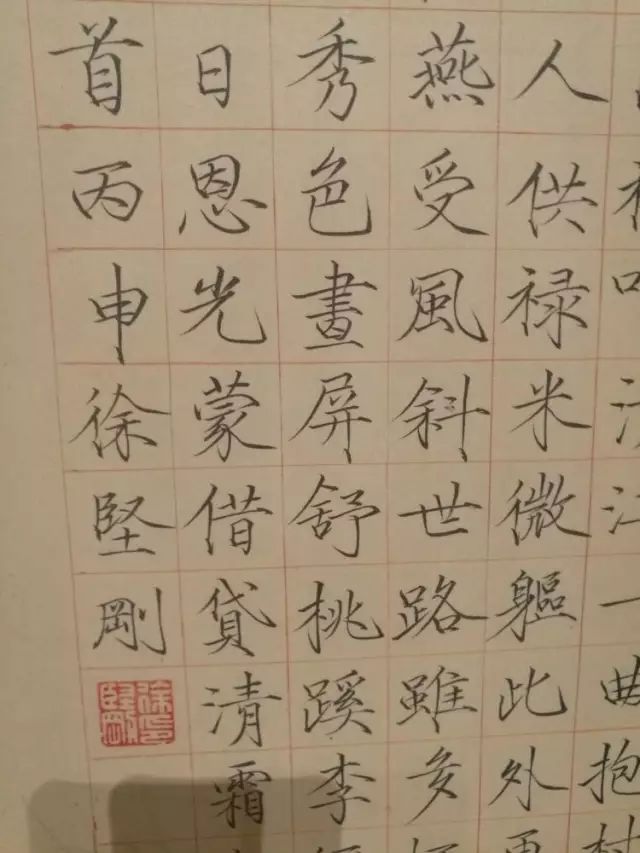 一曲抱村
人供禄米微軀此外更
燕受風斜世路雖多
秀色畫屏舒桃蹊李
日恩光蒙借貸清霜
首丙申徐堅剛
徐印堅剛